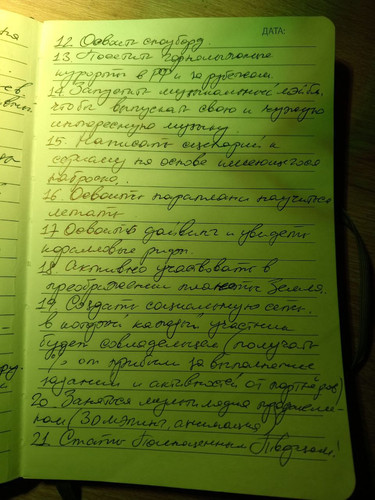 ДАТА:
12. Освоить сноуборд.
13 Посетить горнолыжные
курорты в РФ и за рубежом.
14. Запустить музыкальный лэйбл,
чтобы выпускать свою и чужую
интересную музыку.
15. Написать сценарий к
сериалу на основе имеющегося
наброска.
16 Освоить параплан и научиться
летать
17 Освоить дайвинг и увидеть
коралловые рифы.
18. Активно участвовать в
преображении планеты Земля.
19. Создать социальную сеть,
в которой каждый участник
будет совладельцем (получать
% от прибыли за выполнение
заданий и активности от партнёров)
20 Заняться мультимедиа
(3D мэппинг, анимация)
21. Стать Полноценным Творцом!